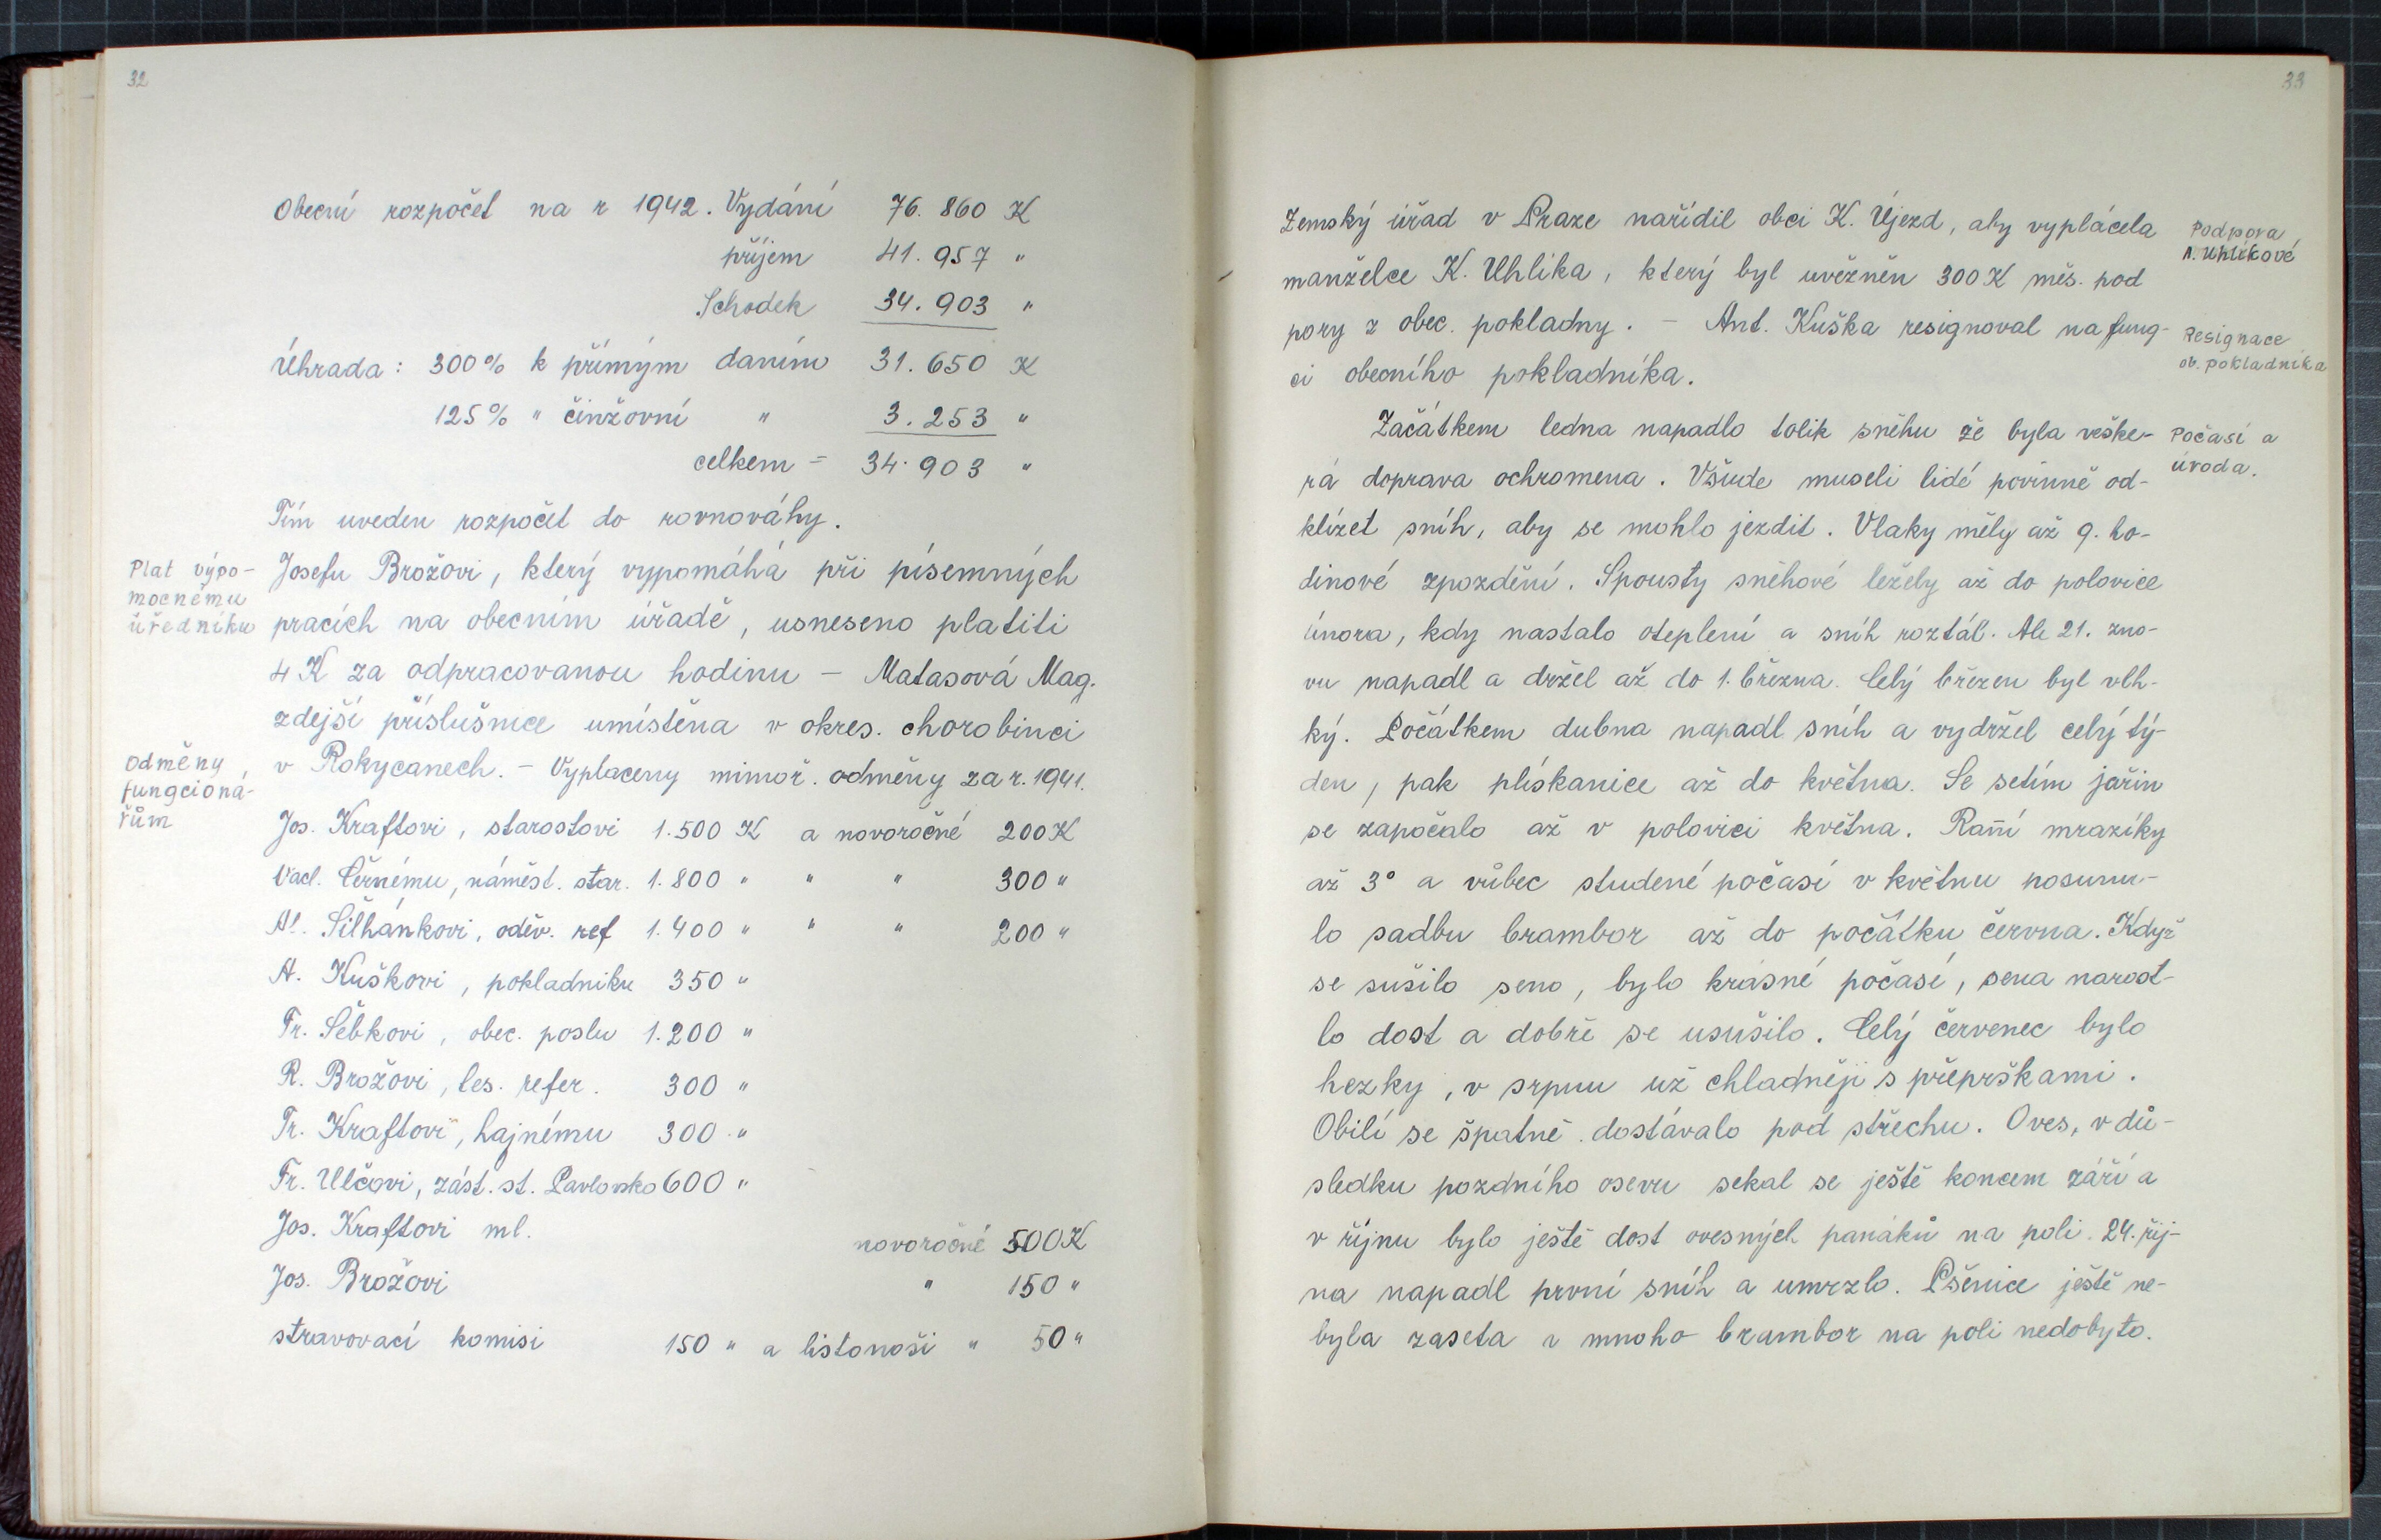 32
Obecní rozpočet na r 1942. Vydání 76.860 K
příjem 41.957 "
Schodek 34.903 "
Úhrada: 300% k přímým daním 31.650 K
125% " činžovní " 3.253 "
celkem = 34.903 "
Tím uveden rozpočet do rovnováhy.
Plat výpo-
mocnému
úředníku
Josefu Brožovi, který vypomáhá při písemných
pracích na obecním úřadě, usneseno platiti
4 K za odpracovanou hodinu – Matasová Mag.
zdejší příslušnice umístěna v okres. chorobinci
Odměny
fungcioná-
řům
v Rokycanech. – Vyplaceny mimoř. odměny za r. 1941.
Jos. Kraftovi, starostovi 1.500 K a novoročné 200 K
Vacl. Černému, náměst. star. 1.800 " " " 300 "
Al. Šilhánkovi, oděv. ref 1.400 " " " 200 "
A. Kuškovi, pokladniku 350 "
Fr. Šebkovi, obec. poslu 1.200 "
R. Brožovi, les. refer. 300 "
Fr. Kraftovi, hajnému 300 "
Fr. Ulčovi, zást. st. Pavlovsko 600 "
Jos. Kraftovi ml. novoročné 500 K
Jos. Brožovi " 150 "
stravovací komisi 150 " a listonoši " 50 "
33
Zemský úřad v Praze nařídil obci K. Újezd, aby vyplácela
manželce K. Uhlíka, který byl uvězněn 300 K měs. pod
pory z obec. pokladny. – Ant. Kuška resignoval na fung-
ci obecního pokladníka.
Podpora
A. Uhlíkové
Resignace
ob. pokladníka
Začátkem ledna napadlo tolik sněhu že byla veške-
rá doprava ochromena. Všude museli lidé povinně od-
klízet sníh, aby se mohlo jezdit. Vlaky měly až 9. ho-
dinové zpoždění. Spousty sněhové ležely až do polovice
února, kdy nastalo oteplení a sníh roztál. Ale 21. zno-
vu napadl a držel až do 1. března. Celý březen byl vlh-
ký. Počátkem dubna napadl sníh a vydržel celý tý-
den, pak plískanice až do května. Se setím jařin
se započalo až v polovici května. Ranní mrazíky
až 3° a vůbec studené počasí v květnu posunu-
lo sadbu brambor až do počátku června. Když
se sušilo seno, bylo krásné počasí, sena narost-
lo dost a dobře se usušilo. Celý červenec bylo
hezky, v srpnu už chladněji s přeprškami.
Obilí se špatně dostávalo pod střechu. Oves, v dů-
sledku pozdního osevu sekal se ještě koncem září a
v říjnu bylo ještě dost ovesných panáků na poli. 24. říj-
na napadl první sníh a umrzlo. Pšenice ještě ne-
byla zaseta i mnoho brambor na poli nedobyto.
Počasí a
úroda.